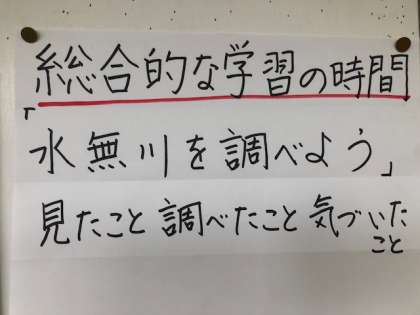 総合的な学習の時間
「水無川を調べよう」
見たこと 調べたこと 気づいたこと